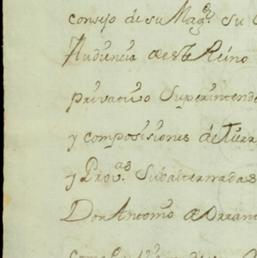 consejo de su Mag.d su
Audiencia de este Reino
privativo Superintend
y composisiones de tierr
y Prov.as Subalternadas
Don Antonio de Arran